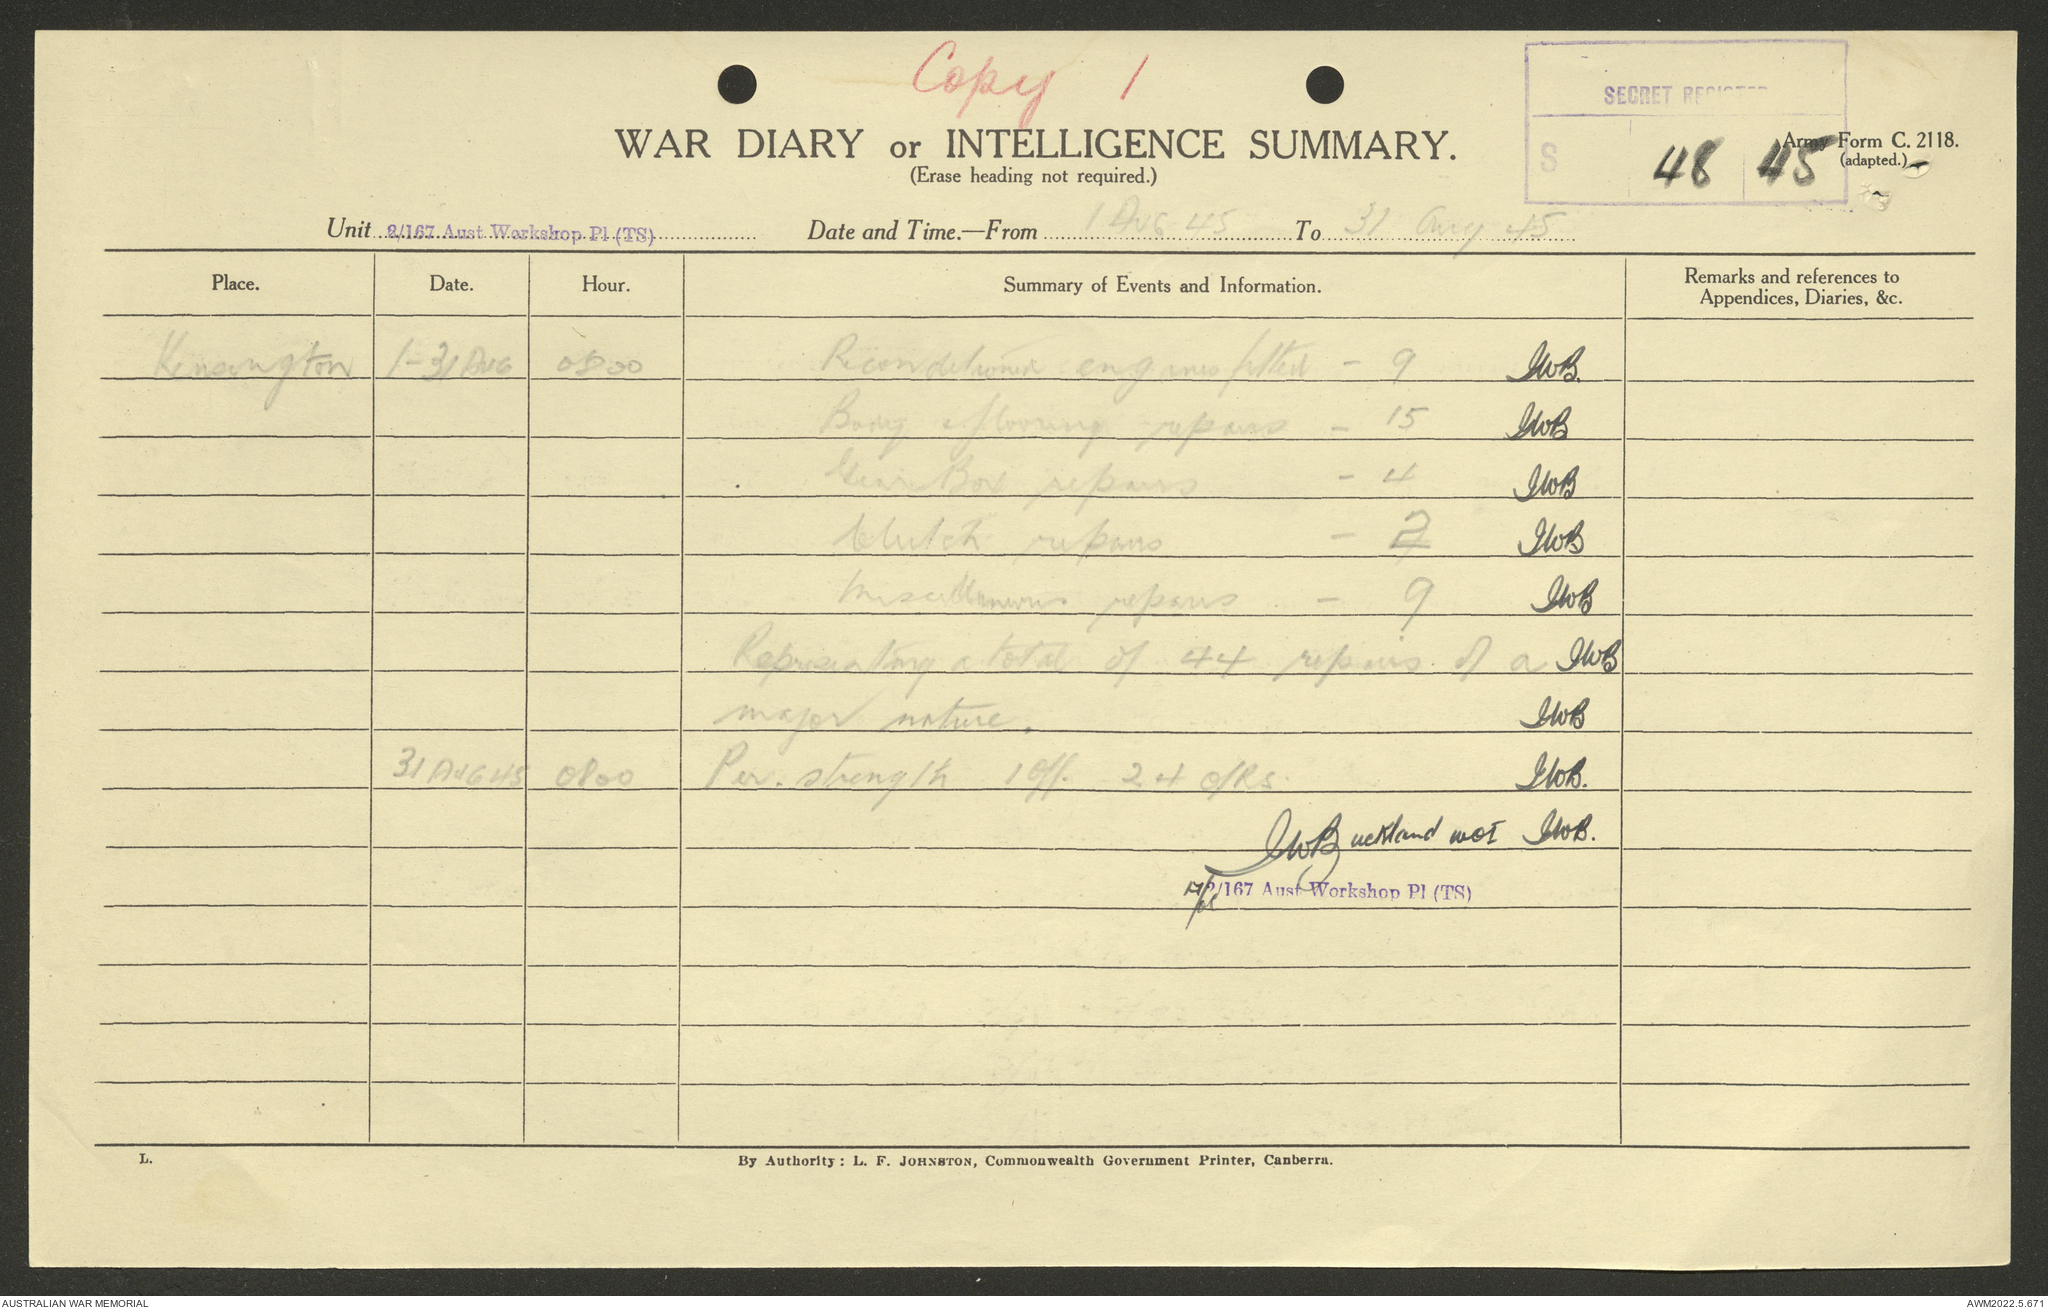 Copy 1
SECRET REGISTER
S 48 45
Army Form C. 2118.
(adapted.)
WAR DIARY or INTELLIGENCE SUMMARY.
(Erase heading not required.)
Unit 2/167 Aust Workshop Pl (TS) Date and Time.—From 1 AUG 45 To 31 Aug 45
Place. Date. Hour. Summary of Events and Information. Remarks and references to Appendices, Diaries, &c.
Kensington 1-31 AUG 0800 Reconditioned engines fitted - 9 JWB.
Body & flooring repairs - 15 JWB
Gear Box repairs - 4 JWB
Clutch repairs - 7 JWB
Miscellaneous repairs - 9 JWB
Representing a total of 44 repairs of a JWB
major nature. JWB
31 AUG 45 0800 Per. strength 1 off. 24 O/Rs. JWB.
JWBuckland WOI JWB.
2/167 Aust Workshop Pl (TS)
L. By Authority: L. F. JOHNSTON, Commonwealth Government Printer, Canberra.
AUSTRALIAN WAR MEMORIAL AWM2022.5.671